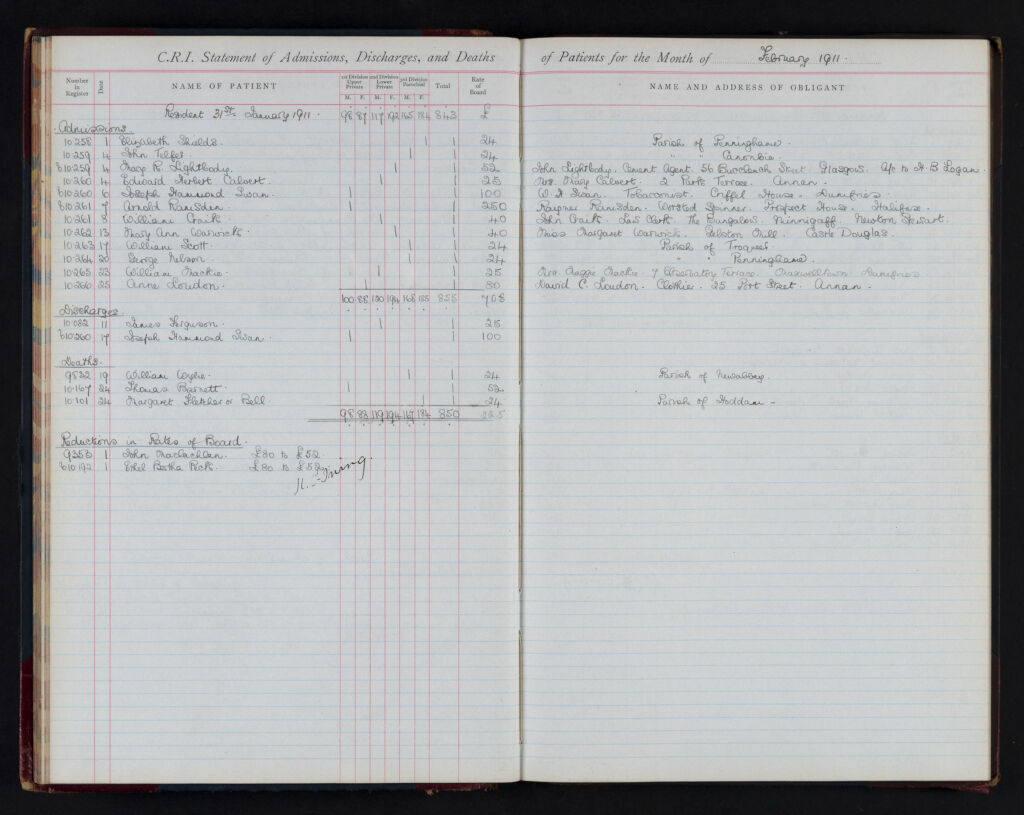 C.R.I. Statement of Admissions, Discharges, and Deaths of Patients for the Month of February 1911.
Number in Register Date NAME OF PATIENT 1st Division Upper Private 2nd Division Lower Private 3rd Division Parochial Total Rate of Board NAME AND ADDRESS OF OBLIGANT
M. F. M. F. M. F.
Resident 31st January 1911. 98 87 117 192 165 184 843 £
Admissions.
10.258 1 Elizabeth Shields. | | 24 Parish of Penninghame.
10.259 4 John Telfer. | | 24 " " Canonbie.
b10.259 4 R. Lightbody. | | 52 John Lightbody. Cement Agent. 56 Buccleuch Street Glasgow. A/c to H. B. Logan.
10.260 4 Edward Herbert Calvert. | | 25 Mrs. Mary Calvert. 2 Park Terrace. Annan.
b10.260 6 Joseph Hammond Swan. | | 100 W. H. Swan. Tobacconist. Criffel House. Dumfries.
b10.261 7 Arnold Ramsden. | | 250 Raynor Ramsden. Worsted Spinner. Prospect House. Halifax.
10.261 8 William Craik. | | 40 John Craik. Law Clerk. The Bungalow. Minnigaff. Newton Stewart.
10.262 13 Mary Ann Warwick. | | 40 Miss Margaret Warwick. Mill. Castle Douglas.
10.263 17 William Scott. | | 24 Parish of Troqueer.
10.264 20 George Nelson. | | 24 " " Penninghame.
10.265 23 William Mackie. | | 25 Mrs. Maggie Mackie. 7 Observatory Terrace. Maxwelltown. Dumfries
10.266 25 Anne Loudon. | | 80 David C. Loudon. Clothier. 25 Port Street. Annan.
100 88 120 194 168 185 855 708
Discharges.
10.082 11 James Ferguson. | | 25
b10.260 17 Joseph Hammond Swan. | | 100
Deaths.
9822 19 William Wylie. | | 24 Parish of Newabbey.
10.167 24 Thomas Barnett. | | 52
10.101 24 Margaret Fletcher or Bell. | | 24 Parish of Hoddam
98 88 119 194 167 184 850 225
Reductions in Rates of Board.
9353 1 John Maclachlan. £80 to £52.
b10.192 1 Ethel Bertha Peck. £80 to £52